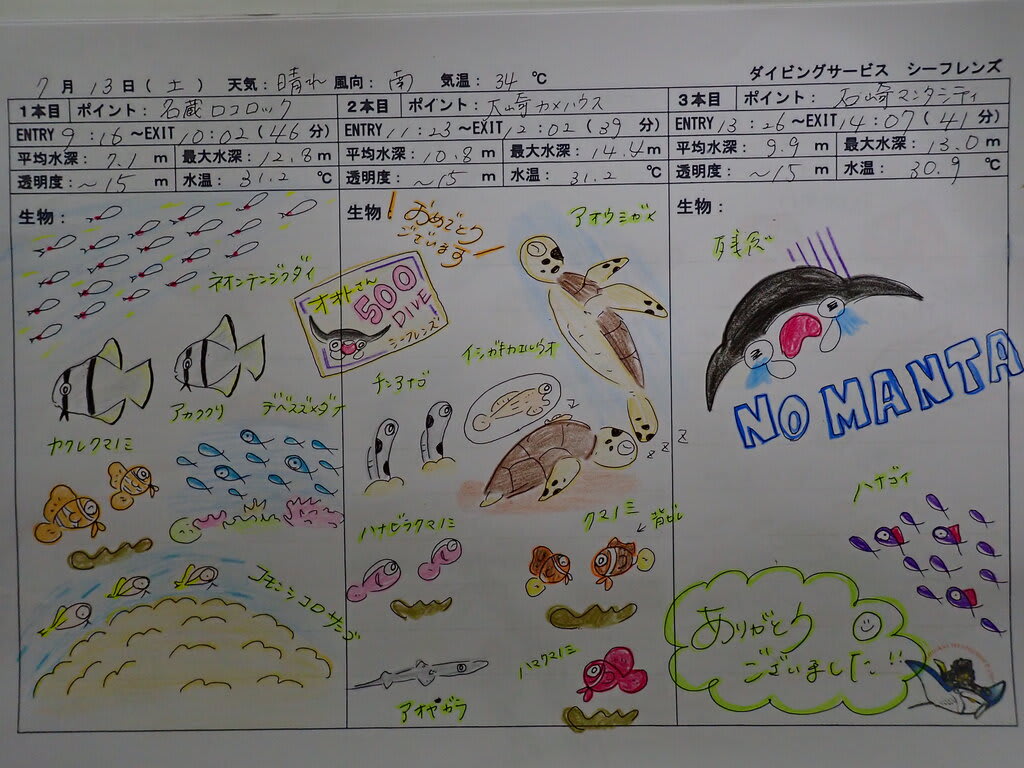 7月13日(土) 天気:晴れ 風向:南 気温:34℃
ダイビングサービス シーフレンズ
1本目 ポイント:名蔵ロコロック
ENTRY 9:16~EXIT 10:02(46分)
平均水深:7.1m 最大水深:12.8m
透明度:~15m 水温:31.2℃
生物:
ネオンテンジクダイ
アカククリ
デバスズメダイ
カクレクマノミ
コモンシコロサンゴ
2本目 ポイント:大崎カメハウス
ENTRY 11:23~EXIT 12:02(39分)
平均水深:10.8m 最大水深:14.4m
透明度:~15m 水温:31.2℃
生物:
おめでとう
ございます!
オキトさん
500
DIVE
シーフレンズ!
アオウミガメ
イシガキカエルウオ
チンアナゴ
z z z
ハナビラクマノミ
クマノミ
背ビレ
ハマクマノミ
アオヤガラ
3本目 ポイント:石崎マンタシティ
ENTRY 13:26~EXIT 14:07(41分)
平均水深:9.9m 最大水深:13.0m
透明度:~15m 水温:30.9℃
生物:
残念
NO MANTA
ハナゴイ
ありがとう
ございました!!